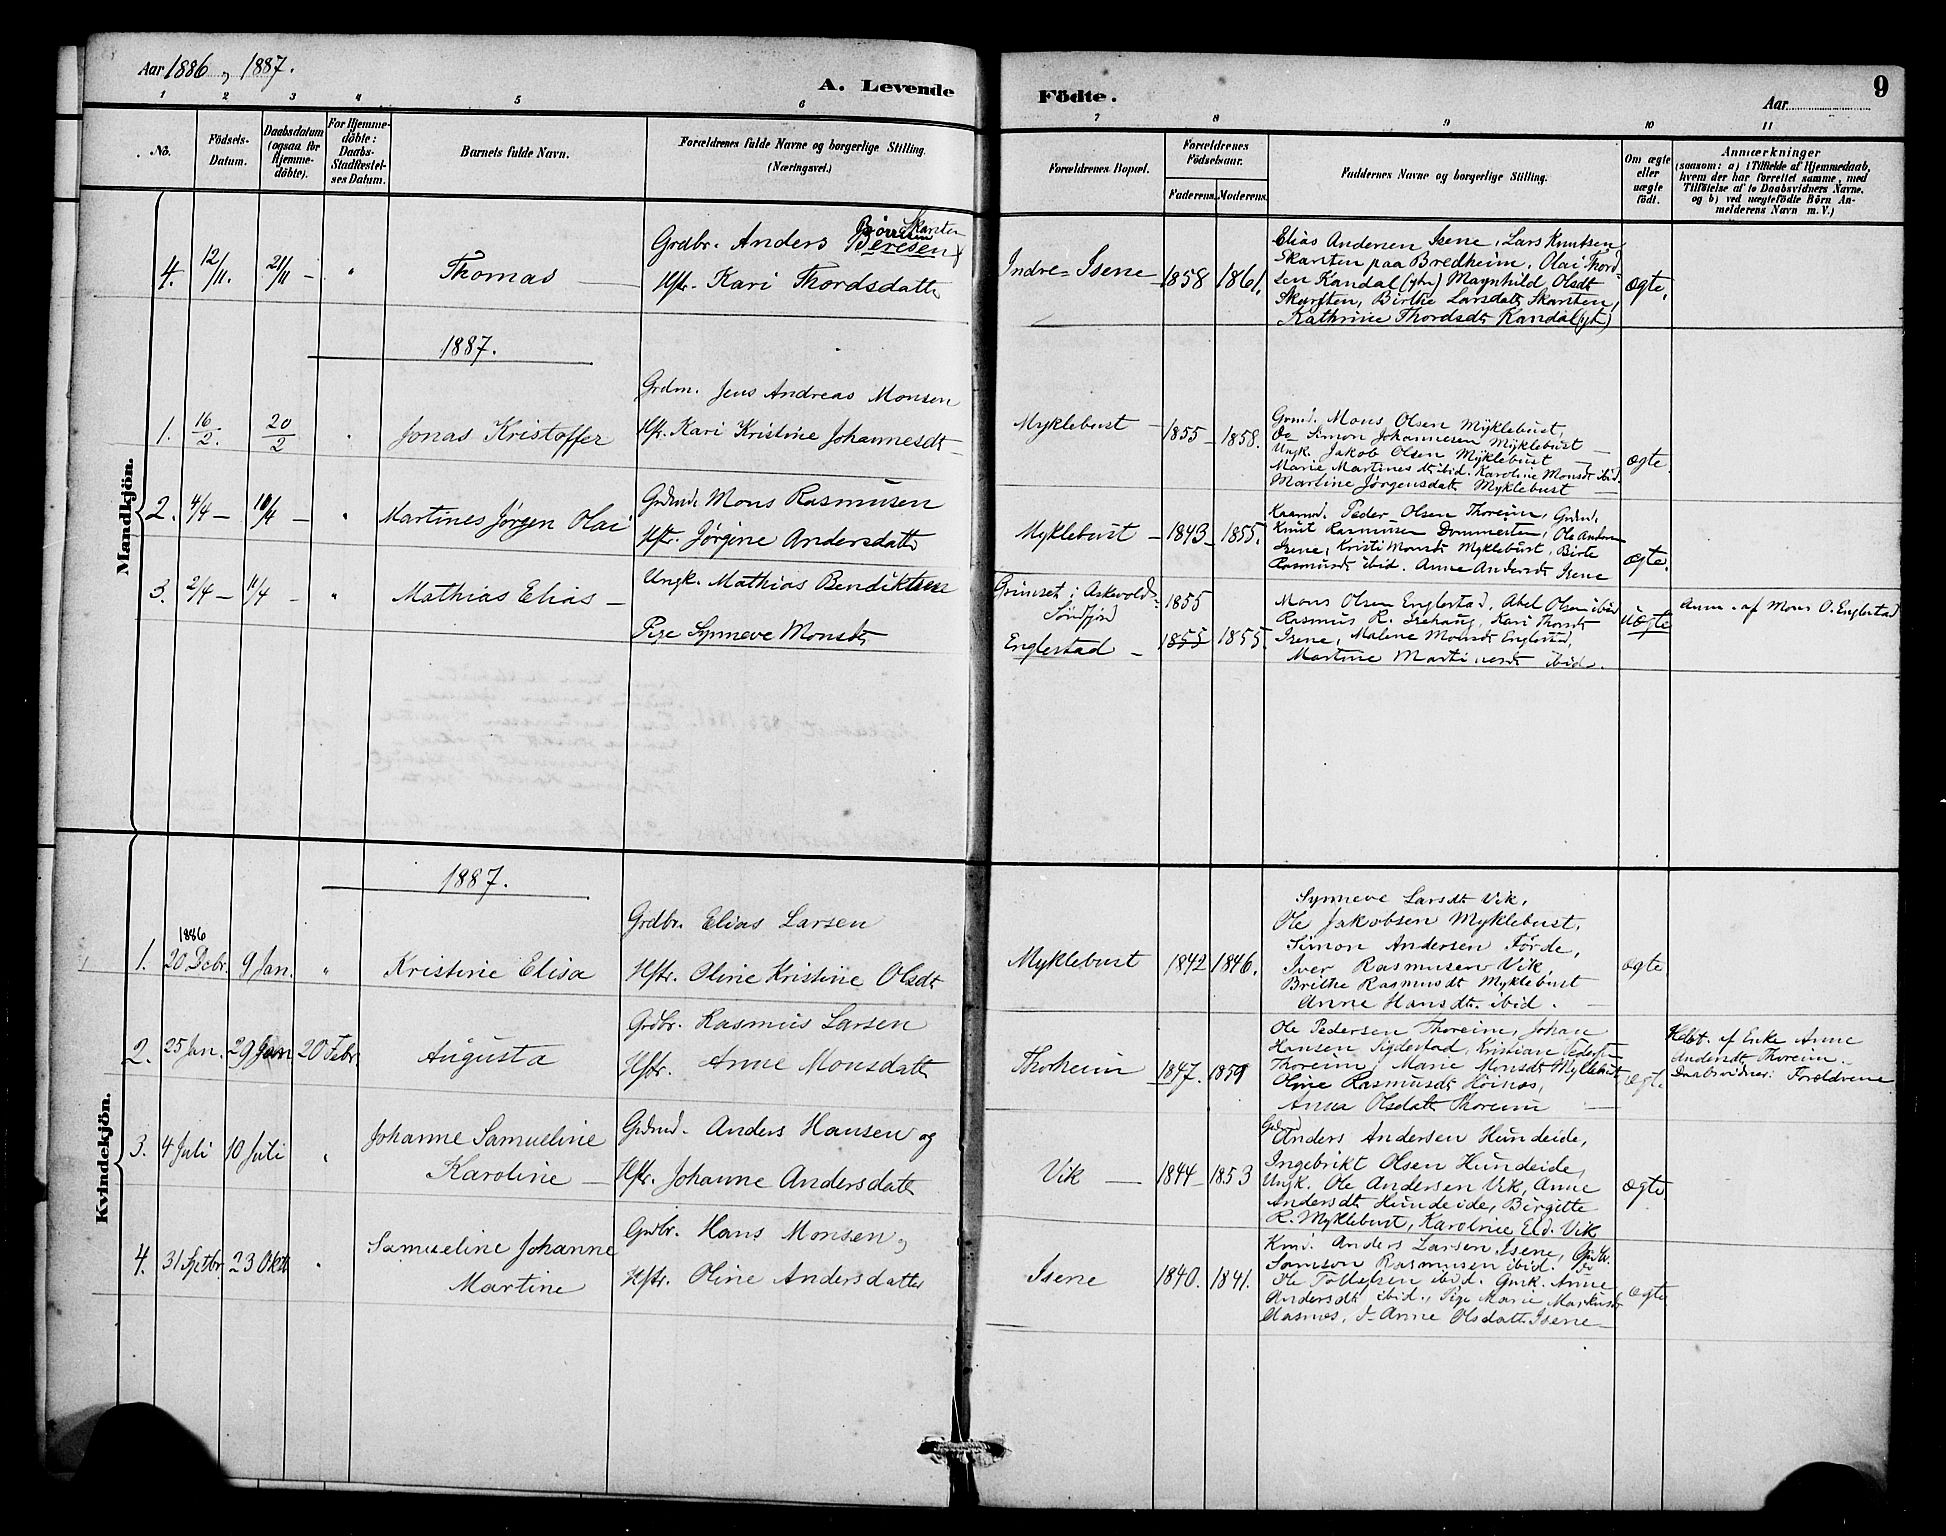 Aar 1886 og 1887.
A. Levende Födte.
Aar
9
1 2 3 4 5 6 7 8 9 10 11
No.
Födsels-Datum.
Daabsdatum (ogsaa for Hjemme-döbte).
For Hjemme-döbte: Daabs-Stadfæstel-ses Datum.
Barnets fulde Navn.
Forældrenes fulde Navne og borgerlige Stilling. (Næringsvei.)
Forældrenes Bopæl.
Forældrenes Födselsaar.
Faderens. Moderens.
Faddernes Navne og borgerlige Stilling.
Om ægte eller uægte födt.
Anmærkninger
(saasom: a) i Tilfælde af Hjemmedaab, hvem der har forrettet samme, med Tilföielse af to Daabsvidners Navne, og b) ved uægtefödte Börn An-melderens Navn m. V.)
Mandkjön.
4. 12/11. 21/11 - " Thomas
Grdbr. Anders Beresen Skarsten
Hstr. Kari Thordsdatter
Indre-Isene 1858 1861.
Elias Andersen Isene, Lars Knutsen
Skarsten paa Bredheim. Olai Thord-
sen Kandal (ytre) Maynhild Olsdt
Skarsten, Birthe Larsdatt Skarsten,
Kathrine Thordsdt Kandal (yt)
ægte,
1887.
1. 16/2. 20/2 " Jonas Kristoffer
Grdm. Jens Andreas Monsen
Hstr. Kari Kristine Johannesdt
Myklebust 1855 1858.
Grmd. Mons Olsen Myklebust,
Do Simon Johannesen Myklebust
Ungk. Jakob Olsen Myklebust
Marie Martinesdt ibid. Karoline Monsdt ibid.
Martine Jørgensdatt Myklebust
ægte.
2. 4/4 - 10/4 - " Martines Jørgen Olai
Grdmd. Mons Rasmusen
Hstr. Jørgine Andersdatter
Myklebust 1843 1855.
Kaarmd. Peder Olsen Thoreim, Grdmd.
Knut Rasmusen Dommersten, Ole Andersen
Isene, Kristi Monsdt Myklebust, Birte
Rasmusdt ibid. Anne Andersdt Isene
ægte.
3. 2/4 - 11/4 - " Mathias Elias
Ungk. Mathias Bendiktsen
Pige Synneve Monsdt
Grimset i Askvold
Söndfjord
Englestad
1855
1855 1855.
Mons Olsen Englestad, Abel Olsen ibid
Rasmus R. Isehaug, Kari Thorsdt
Isene, Malene Monsdt Englestad,
Martine Martinesdt ibid.
Uægte
Anm. af Mons O. Englestad
Kvindekjön.
1887.
1. 1886 20 Debr. 9 Jan. " Kristine Elisa
Grdbr. Elias Larsen
Hstr. Oline Kristine Olsdt
Myklebust 1842 1846.
Synneve Larsdt Vik,
Ole Jakobsen Myklebust,
Simon Andersen Förde,
Iver Rasmusen Vik,
Brithe Rasmusdt Myklebust
Anne Hansdt. ibid.
ægte
2. 25 Jan. 29 Jan 20 Febr. Augusta
Grdbr. Rasmus Larsen
Hstr. Anne Monsdatt
Thoheim 1847. 1859
Ole Pedersen Thoreim, Johan
Hansen Sigdestad, Kristian Pedersen
Thoreim, Marie Monsdt Myklebust
Oline Rasmusdt Höinæs,
Anna Olsdatt Thoreim
ægte.
af Enke Anne
Andersdt Thoreim.
Daabsvidner: Forældrene
3. 4 Juli 10 Juli " Johanne Samueline Karoline
Grdmd. Anders Hansen og
Hstr. Johanne Andersdatt
Vik 1844 1853
Grdmd
Anders Andersen Hundeide,
Ingebrikt Olsen Hundeide,
Ungk. Ole Andersen Vik, Anne
Andersdt Hundeide, Birgitte
R. Myklebust, Karoline Eld. Vik
ægte
4. 31 Septbr. 23 Oktr " Samueline Johanne Martine
Grdbr. Hans Monsen og
Hstr. Oline Andersdatter
Isene 1840. 1841.
Anders Larsen Isene, Grdbr.
Samson Rasmusen ibid.
Ole Tollefsen ibid. Gmk. Anne
Andersdt ibid., Pige Marie Markusdt
Aasnes, d- Anne Olsdatt. Isene
ægte